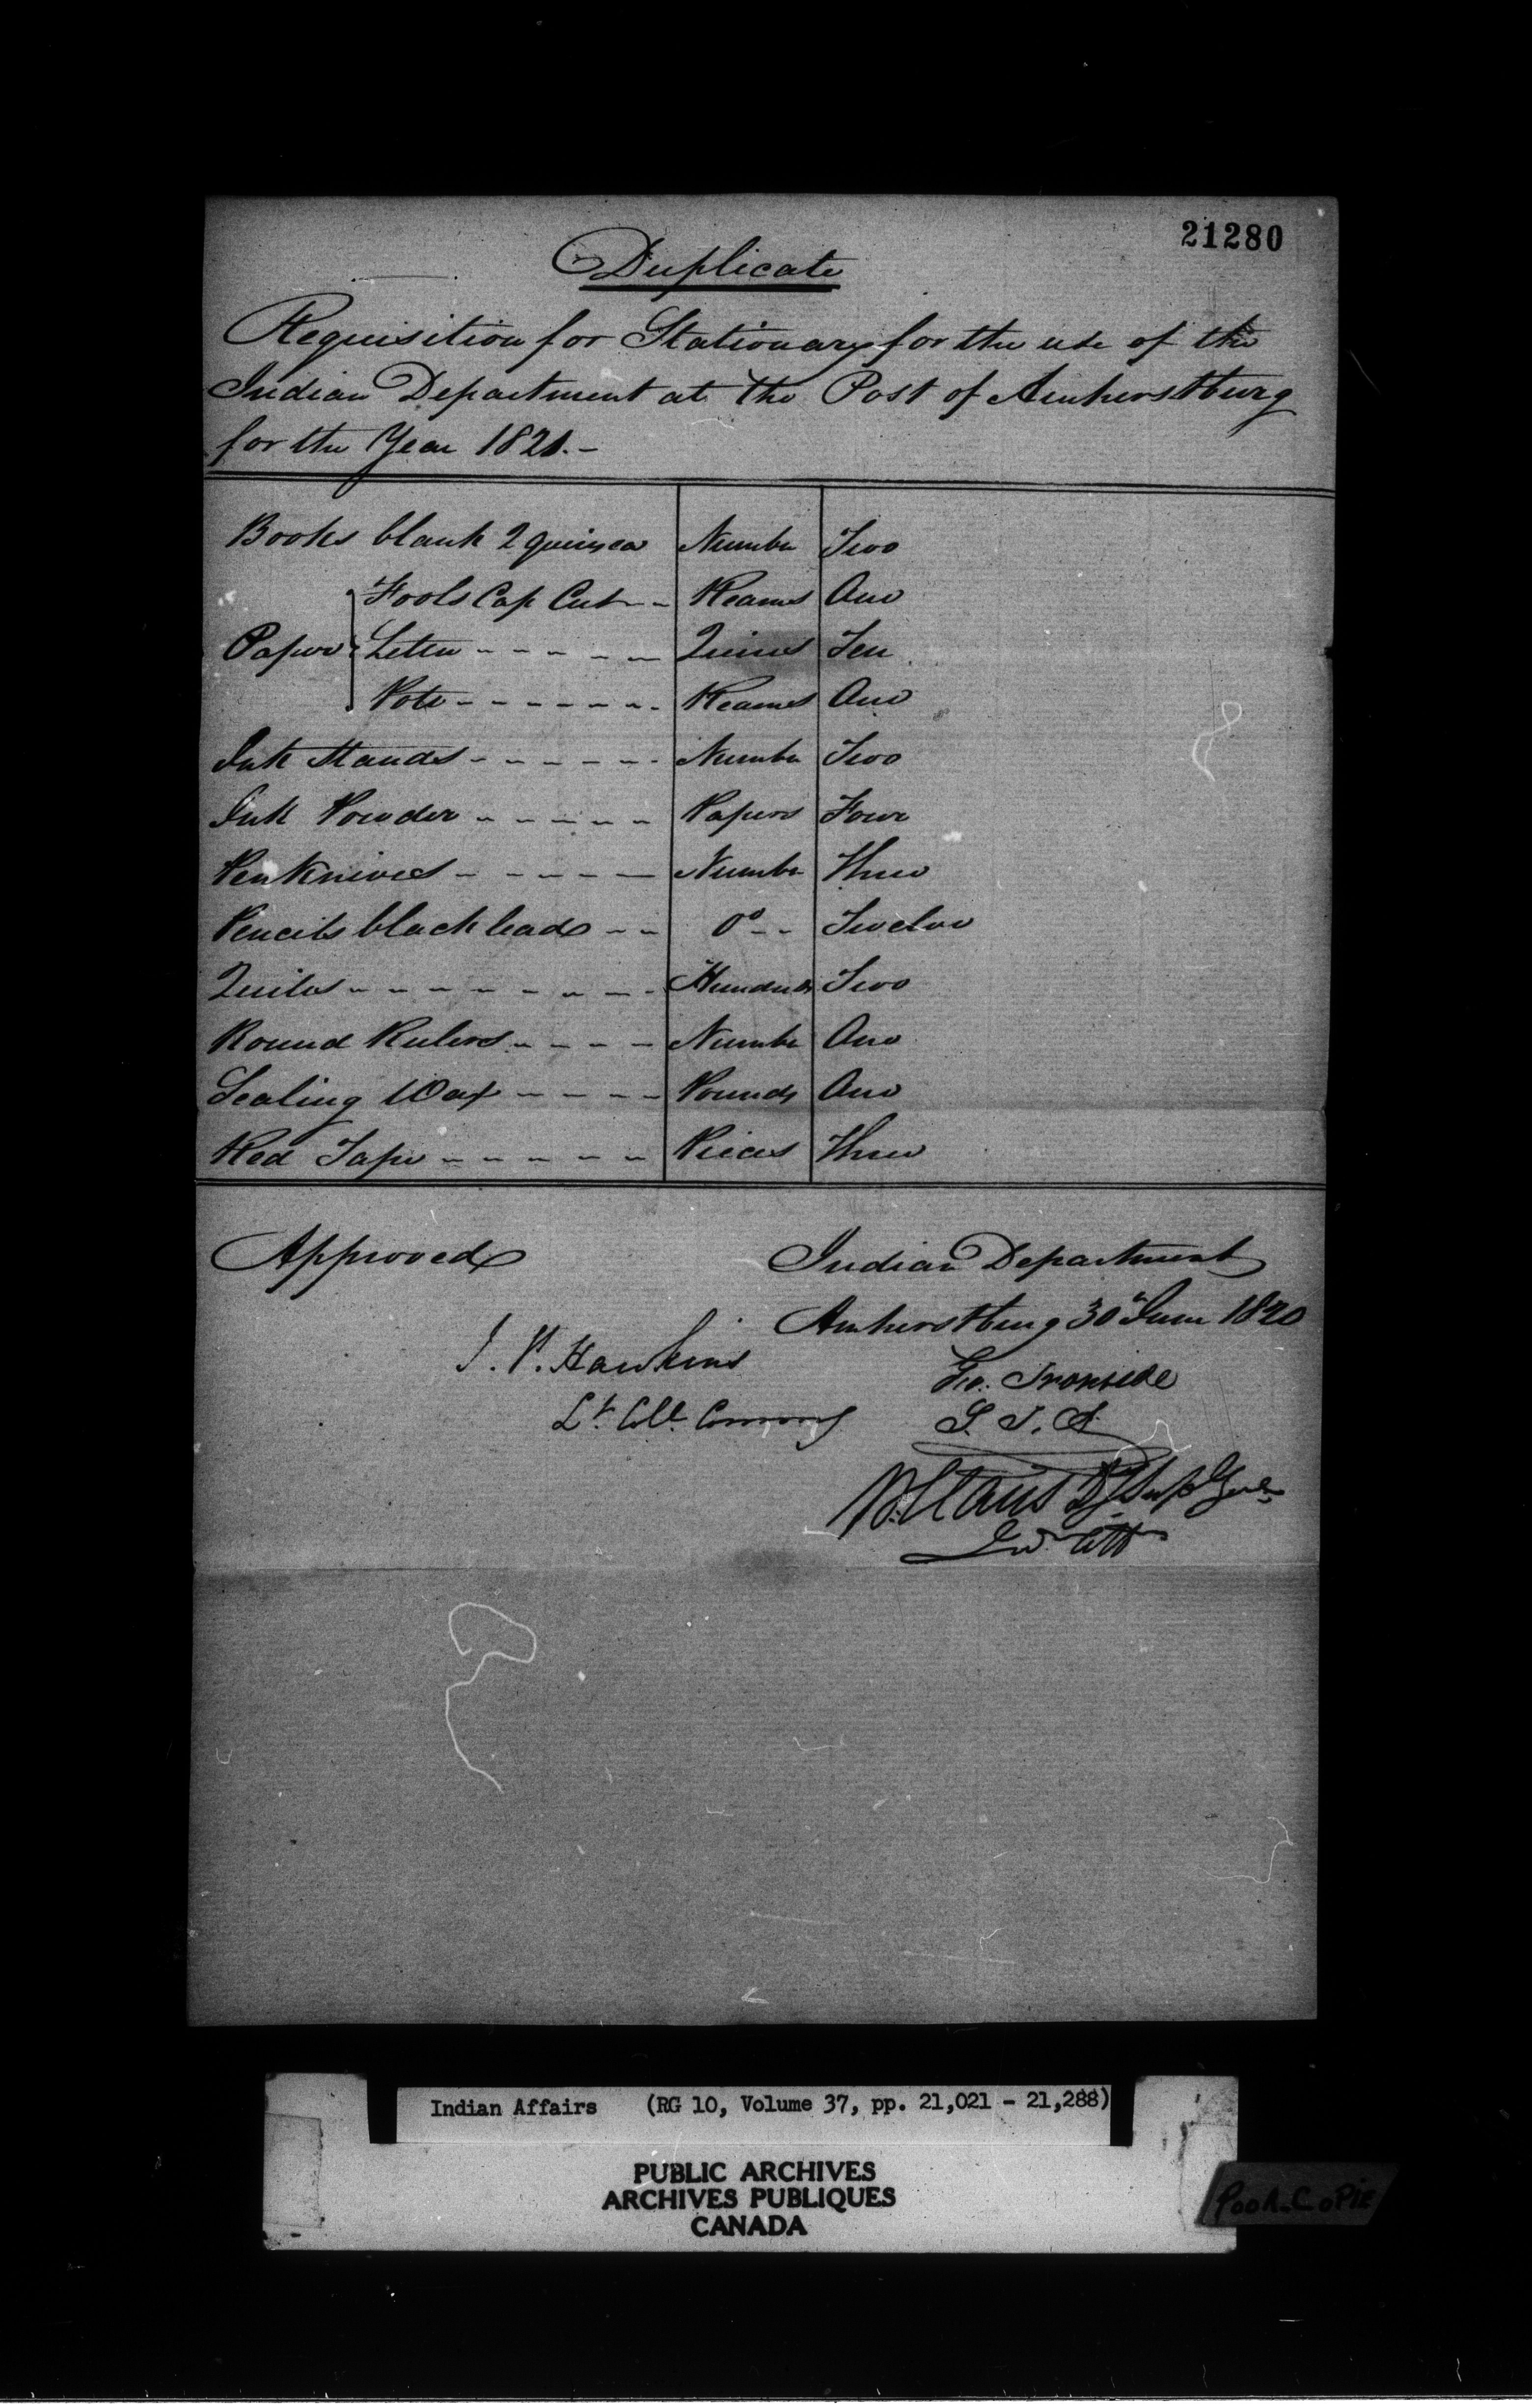 21280
Duplicate
Requisition for Stationary for the use of the
Indian Department at the Post of Amherstburg
for the Year 1821.-
Books blank 2 quires ea Number Two
Fools Cap Cut Reams One
Paper Letter Quires Ten
Pott Reams One
Ink Stands Number Two
Ink Powder Papers Four
Penknives Number Three
Pencils black lead Do Twelve
Quills Hundreds Two
Round Rulers Number One
Sealing Wax Pounds One
Red Tape Pieces Three
Approved Indian Department
Amherstburg 30th June 1820
J. P. Hawkins Geo. Ironside
Lt. Coll. Commg S. I. A.
W: Claus Dy Sup Genl
Ind. Aff
Indian Affairs (RG 10, Volume 37, pp. 21,021 - 21,288)
PUBLIC ARCHIVES
ARCHIVES PUBLIQUES
CANADA
POOR COPIE